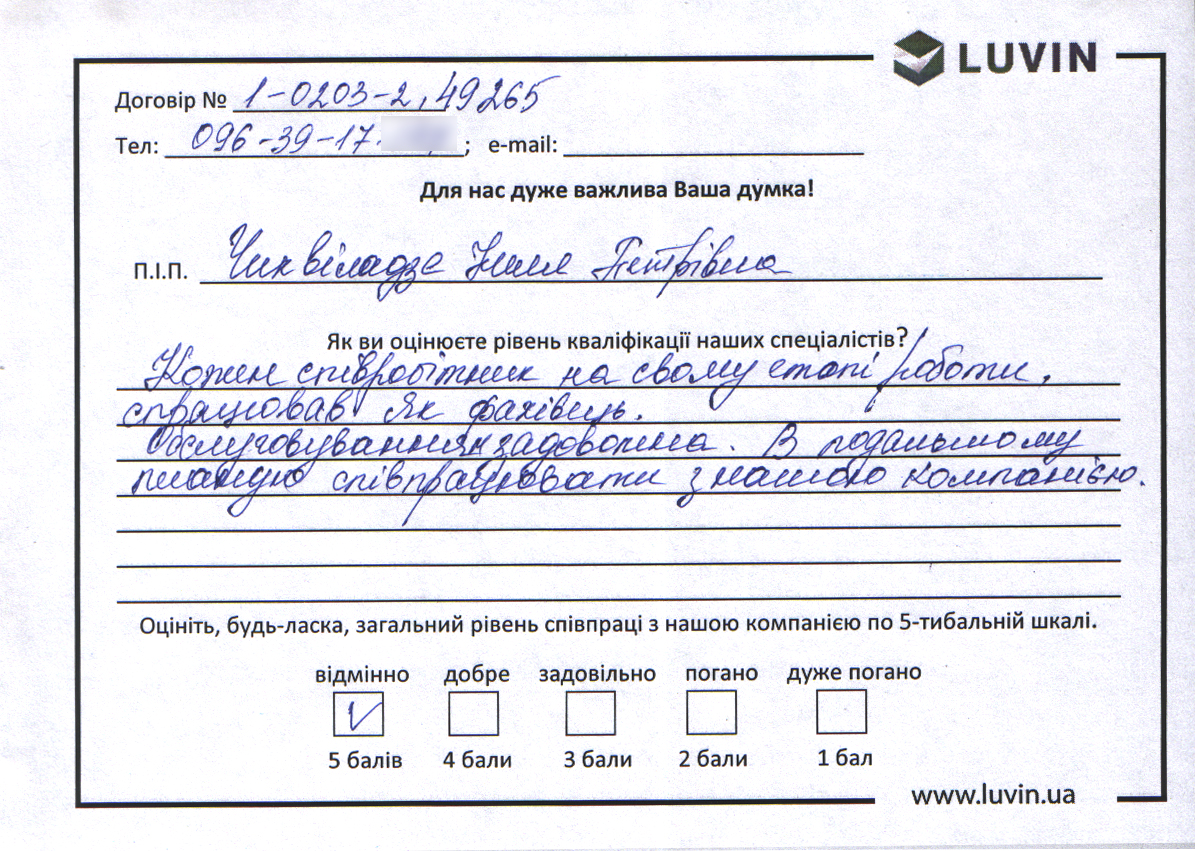 LUVIN
Договір № 1-0203-2, 49265
Тел: 096-39-17- ; e-mail:
Для нас дуже важлива Ваша думка!
П.І.П. Чиквіладзе Петрівна
Як ви оцінюєте рівень кваліфікації наших спеціалістів?
Кожен співробітник на свому етапі роботи,
спрацював як фахівець.
Обслуговуванням задоволена. В подальшому
планую співпрацювати з нашою компанією.
Оцініть, будь-ласка, загальний рівень співпраці з нашою компанією по 5-тибальній шкалі.
відмінно добре задовільно погано дуже погано
5 балів 4 бали 3 бали 2 бали 1 бал
www.luvin.ua